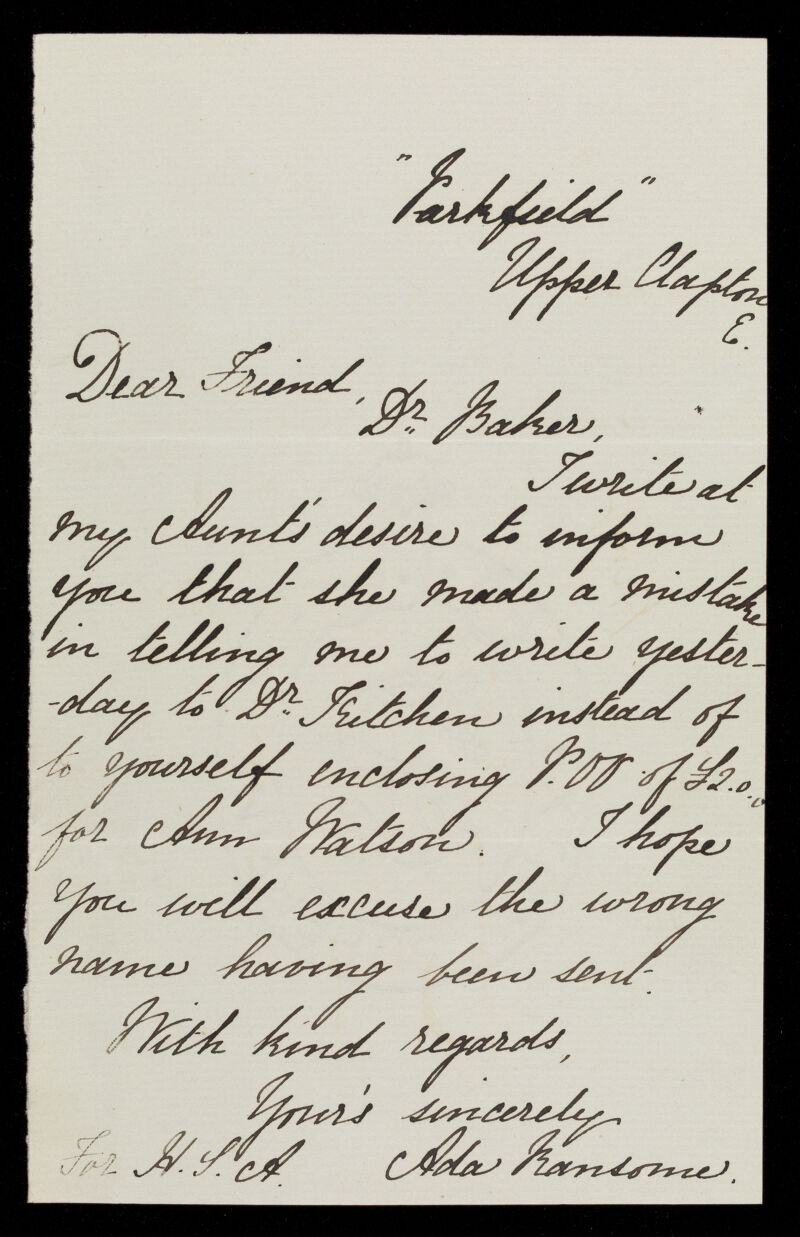 "Parkfield"
Upper Clapton
E.
Dear Friend,
Dr. Baker,
I write at
my Aunt's desire to inform
you that she made a mistake
in telling me to write yester-
-day to Dr. Kitchen instead of
to yourself enclosing P.OO of £2.0.0
for Ann Watson. I hope
you will excuse the wrong
name having been sent.
With kind regards,
Your's sincerely
For H.S.A. Ada Ransome.